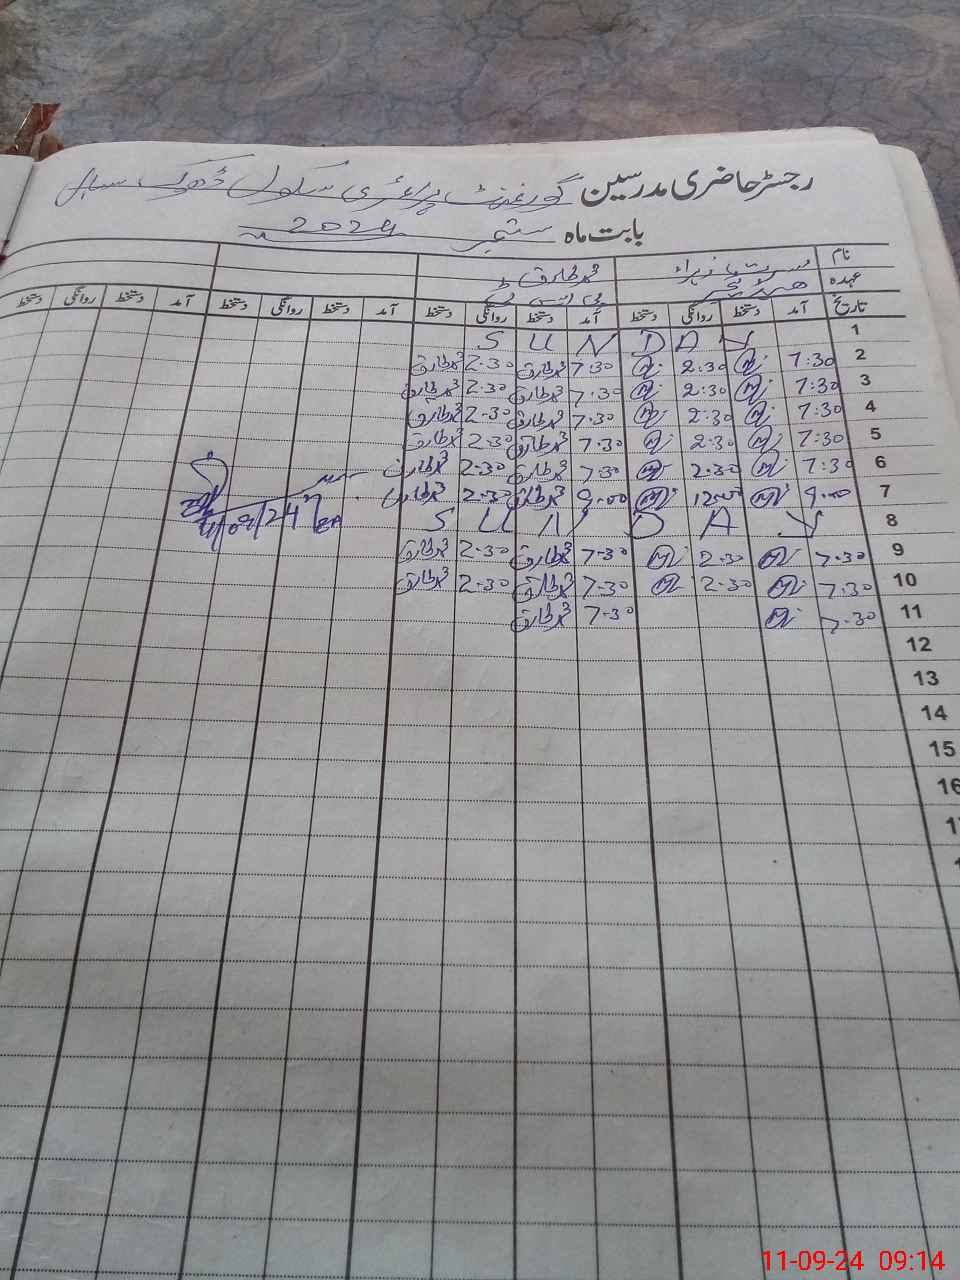 رجسٹر حاضری مدرسین گورنمنٹ پرائمری سکول ڈھوک سیال
بابت ماہ ستمبر 2024ء
نام مسرت زہراء محمد طارق
عہدہ ہیڈ ٹیچر پی ایس ٹی
تاریخ آمد دستخط روانگی دستخط آمد دستخط روانگی دستخط آمد دستخط روانگی دستخط آمد دستخط روانگی دستخط
1 S U N D A Y
2 7:30 2:30 7:30 محمد طارق 2:30 محمد طارق
3 7:30 2:30 7:30 محمد طارق 2:30 محمد طارق
4 7:30 2:30 7:30 محمد طارق 2:30 محمد طارق
5 7:30 2:30 7:30 محمد طارق 2:30 محمد طارق
6 7:30 2:30 7:30 محمد طارق 2:30 محمد طارق
7 9:00 12:00 9:00 محمد طارق 2:30 محمد طارق
8 S U N D A Y
9 7:30 2:30 7:30 محمد طارق 2:30 محمد طارق
10 7:30 2:30 7:30 محمد طارق 2:30 محمد طارق
11 7:30 7:30 محمد طارق
12
13
14
15
16
11-09-24 09:14